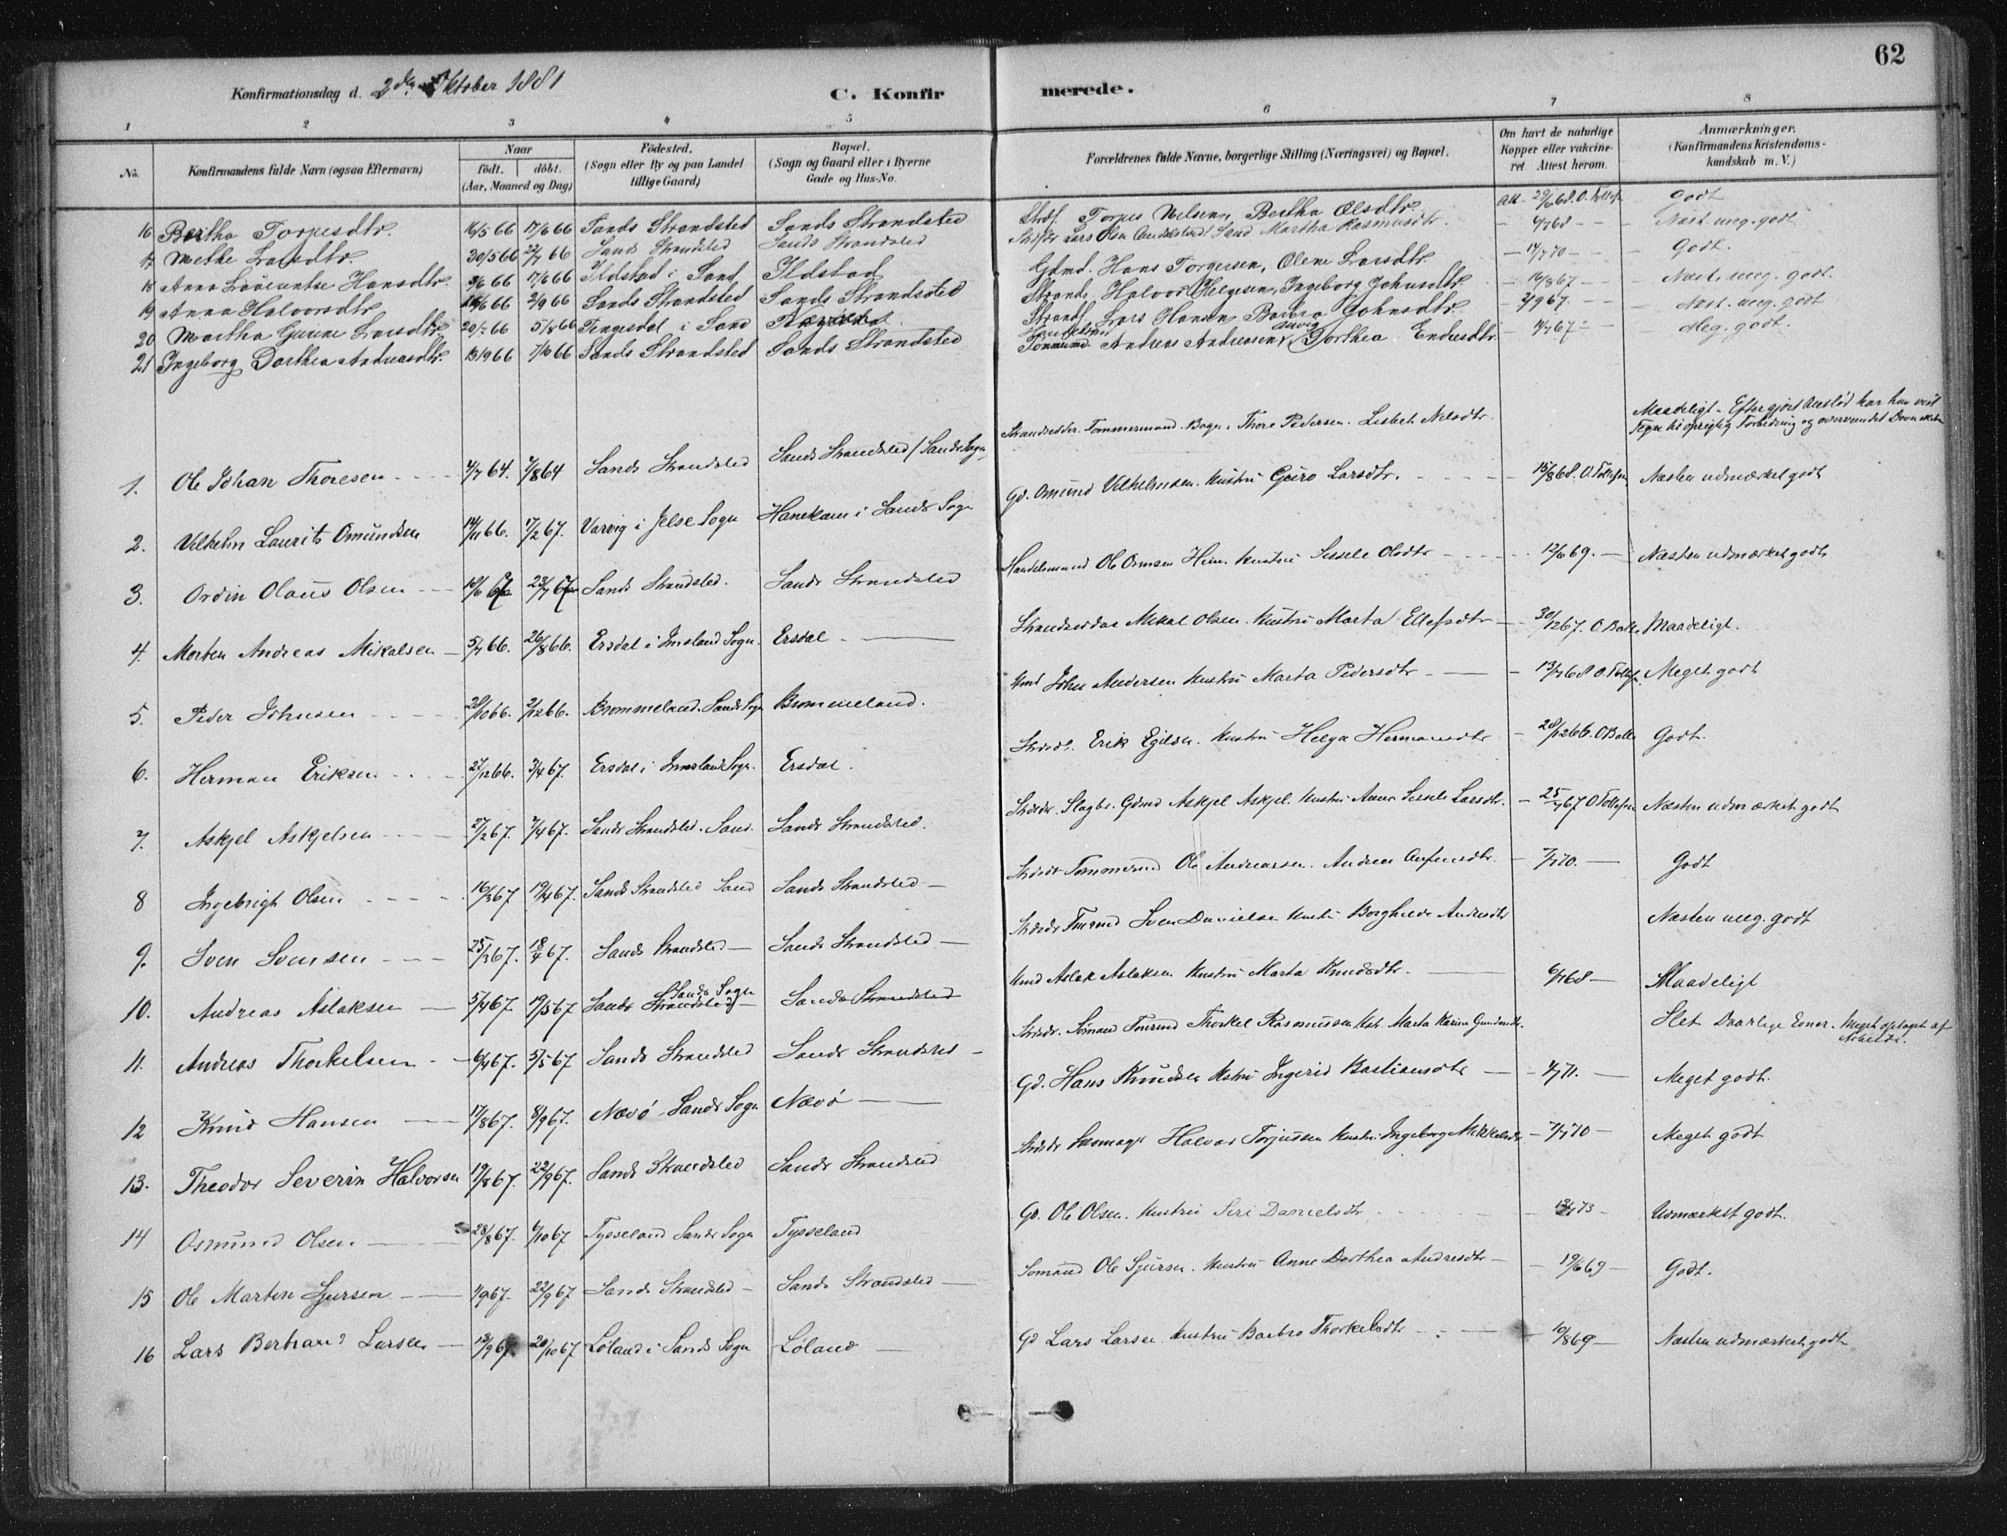 62
Konfirmationsdag d. 2den Oktober 1881 C. Konfirmerede.
1 2 3 4 5 6 7 8
No. Konfirmandens fulde Navn (ogsaa Efternavn) Naar født. døbt. (Aar, Maaned og Dag) Fødested. (Sogn eller By og paa Landet tillige Gaard) Bopæl. (Sogn og Gaard eller i Byerne Gade og Hus-No. Forældrenes fulde Navne, borgerlige Stilling (Næringsvei) og Bopæl. Om havt de naturlige Kopper eller vaccineret Attest herom. Anmærkninger. (Konfirmandens Kristendomskundskab m. V.)
16 Bertha Torgesdtr. 16/5 66 17/6 66 Sands Strandsted Sands Strandsted Torges Nelsen, Bertha Olsdtr. Godt
17 Methe Larsdtr. 20/5 66 22/7 66 Sands Strandsted Sands Strandsted Lars Olsen Sand Martha Rasmusdtr. Næst. meg. godt
18 Anna Hansdtr. 3/6 66 17/6 66 Ilstad i Sand Ilstad Gdmd. Hans Torgersen, Olene Larsdtr. 14/7 70 Godt.
19 Anna Halvorsdtr. 2/9 66 Sands Strandsted Sands Strandsted Halvor Helgesen, Ingeborg Johnsdtr. 16/8 67 Næst. meg. godt.
20 Martha Gurine Larsdtr. 20/7 66 5/8 66 Tengesdal i Sand Lars Hansen Johnsdtr. 2/9 67. Næst. meg. godt
21 Ingeborg Dorthea Andreasdtr. 13/9 66 7/10 66 Sands Strandsted Sands Strandsted Andreas Andreasen, Dorthea Endresdtr. Meg. godt.
1. Ole Johan Thoresen 4/7 64. 7/8 64 Sands Strandsted Sands Strandsted (Sands Sogn) Tømmermand Thore Pedersen. Lisbet Nelsdtr. Maadeligt. Tegn til oprigtig Forbedring og overvundet
2. Vilhelm Laurits Omundsen 14/11 66. 17/2 67. Varvig i Jelse Sogn Hanekam i Sands Sogn Gd. Omund Vilhelmsen. Hustru Guro Larsdtr. 15/8 68. O. Tollefsen Næsten udmærket godt
3. Ordin Olaus Olsen Sands Strandsted. Sands Strandsted Handelsmand Ole Ormsen Heim. Hustru Sissele Olsdtr 12/6 69. Næsten udmærket godt
4. Morten Andreas Mikalsen 5/7 66. 26/8 66. Ersdal i Imsland Sogn. Ersdal Strandsidder Mikal Olsen. Hustru Marta Ellefsdtr 30/12 67. Maadeligt.
5. Peder Johnsen 28/10 66. 2/12 66. Brommeland. Sands Sogn Brommeland. John Andersen Hustru Marta Pedersdtr 13/7 68 O. Tollefs. Meget godt
6. Herman Eriksen 27/12 66. 3/4 67. Ersdal i Imsland Sogn. Ersdal. Erik Egilsen. Hustru Helga Hermansdtr Godt.
7. Askjel Askjelsen 27/2 67. 7/4 67. Sands Strandsted. Sand. Sands Strandsted. Gdmd Askjel Askjel. Hustru Anna Sissele Larsdtr. 25/7 67 O. Tollefsen Næsten udmærket godt
8 Ingebrigt Olsen 16/3 67 19/4 67. Sands Strandsted Sand Sands Strandsted Ole Andreassen. Andrea 7/7 70. Godt
9. Sven Svensen 25/3 67. 18/4 67. Sands Strandsted Sands Strandsted Sven Danielsen Hustru Borghilde Andresdtr Næsten meg. godt
10. Andreas Aslaksen 5/4 67. 19/5 67 Sands Strandsted Sands Sogn Sands Strandsted Aslak Aslaksen Hustru Marta Knudsdtr. 6/7 68 Maadeligt
11. Andreas Thorkelsen 6/4 67. 5/5 67 Sands Strandsted Sands Strandsted Thorkel Rasmussen Marta Karina Slet. Daarlige Evner. Meget optaget af Arbeide.
12 Knud Hansen 17/8 67. 8/9 67. Nævø. Sands Sogn Nævø Gd. Hans Knudsen Hustru Ingerid Bastiansdtr 4/7 71. Meget godt.
13. Theodor Severin Halvorsen 19/8 67. 22/9 67. Sands Strandsted Sands Strandsted Halvor Torjussen Hustru Ingeborg Mikkelsdtr 7/7 70 Meget godt
14 Osmund Olsen 28/8 67. 6/10 67 Tysseland Sands Sogn Tysseland Gd. Ole Olsen. Hustru Siri Danielsdtr Udmærket godt.
15 Ole Marten Sjursen 1/9 67. 22/9 67 Sands Strandsted Sands Strandsted Sømand Ole Sjursen. Hustru Anne Dorthea Andresdtr 19/6 69 Godt.
16 Lars Bertrand Larsen 13/9 67 20/10 67 Løland i Sands Sogn Løland Gd Lars Larsen Hustru Barbro Thorkelsdtr 10/8 69 Næsten udmærket godt